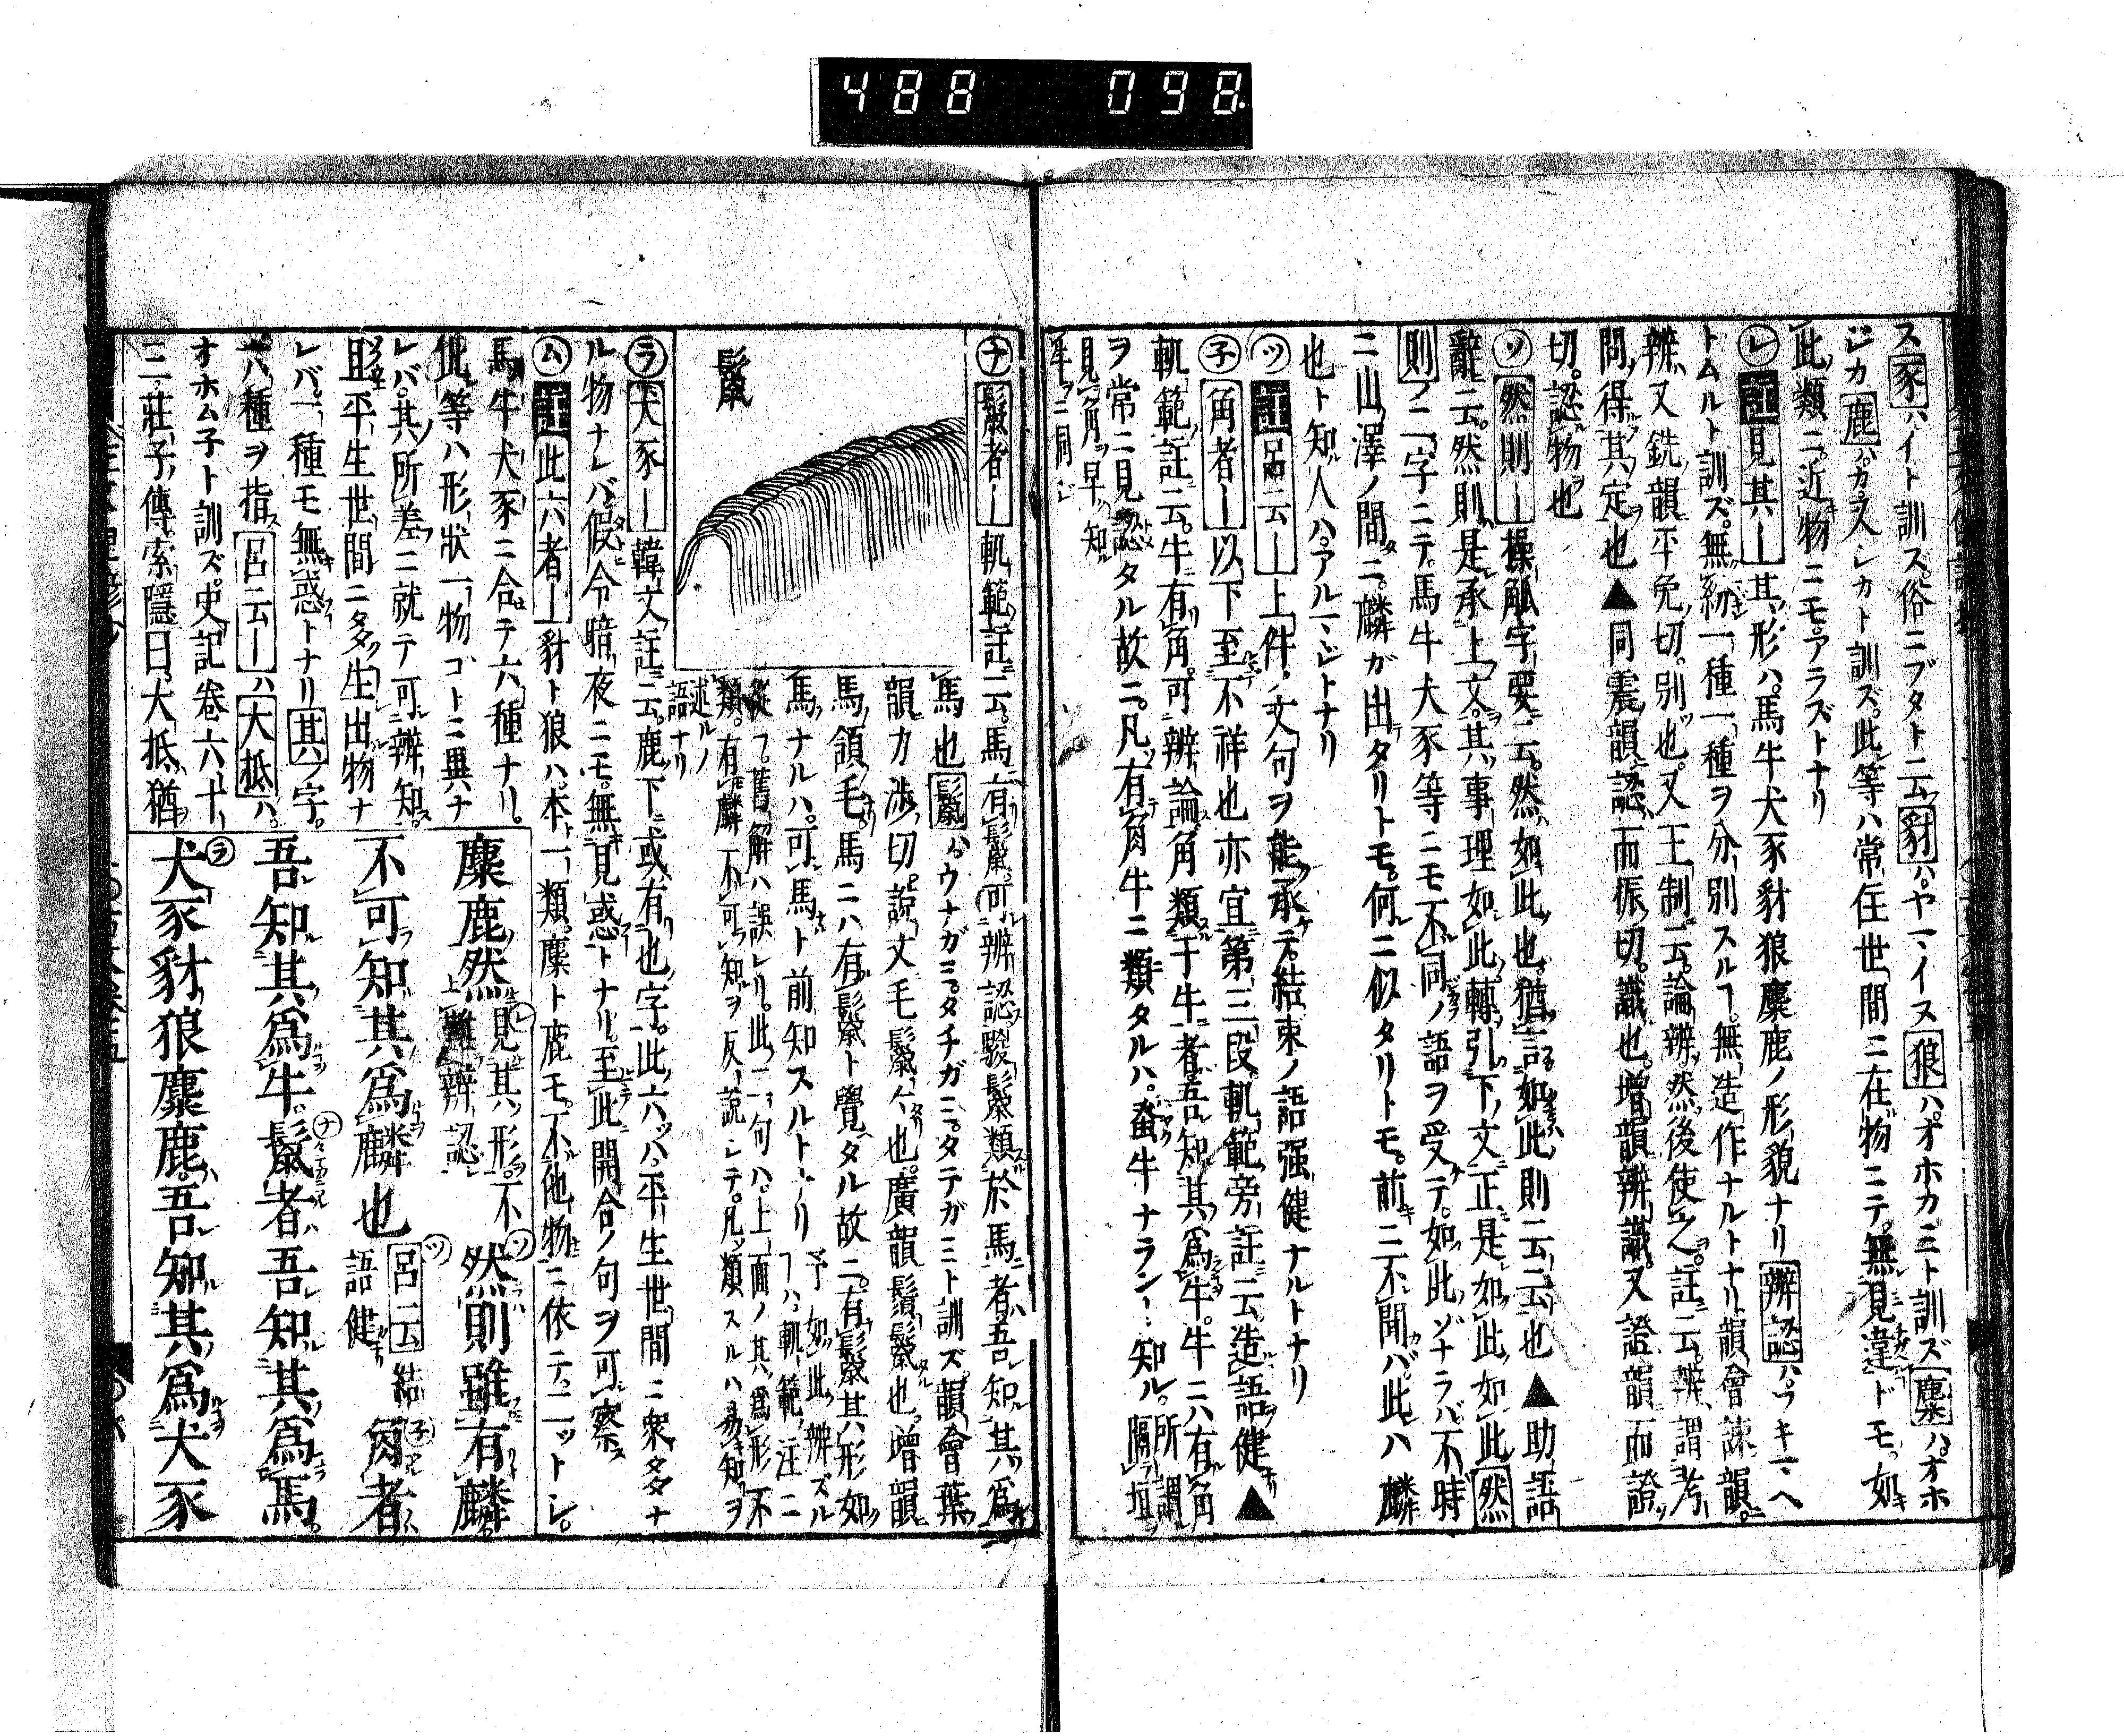 488 098
ス豕ハイト訓ス俗ニブタト云豺ハヤマイス狼ハオホカミト訓ズ麋ハオホ
ジカ鹿ハカ又シカト訓ズ此等ハ常在世間ニ在物ニテ無見違ドモ如
此類ニ近物ニモアラズトナリ
レ註見其― 其形ハ馬牛犬豕豺狼麋鹿ノ形貌ナリ辨認ハワキマヘ
トムルト訓ズ無紛一種一種ヲ分別スルヿ無造作ナルトナリ韻會諫韻
辨又銑韻平免切別也又王制云論辨然後使之註云辨謂考
問得其定也▲同震韻認而振切識也增韻辨識又證韻而證
切認物也
ソ然則―操觚字要云然如此也猶言如此則云云也▲助語
辭云然則是承上文其事理如此轉引下文正是如此如此然
則ノ二字ニテ馬牛犬豕等ニモ不同ノ語ヲ受テ如此ゾナラバ不時
ニ山澤ノ間ニ麟ガ出タリトモ何ニ似タリトモ前ニ不聞バ此ハ麟
也ト知人ハアルマジトナリ
ツ註呂云―上件ノ文句ヲ能承テ結束ノ語强健ナルトナリ
子角者―以下至不祥也亦宜第三段軌範旁註云造語健▲
軌範註云牛有角可辨論角類于牛者吾知其爲牛牛ニハ有角
ヲ常ニ見認タル故ニ凡有角牛ニ類タルハ牛ナラント知ル所謂隔垣
見角早知
牛ニ同ジ
ナ鬣者―軌範註云馬有鬣可辨認駿鬣類於馬者吾知其爲
馬也鬣ハウナガミタチガミタテガミト訓ズ韻會葉
韻力渉切說文毛鬣也廣韻鬚鬣也增韻
馬領毛馬ニハ有鬣ト覺タル故ニ有鬣其形如
馬ナルハ可馬ト前知スルトナリ
予如此辨ズル
ヿハ軌範注ニ
從フ舊解ハ誤レリ此二句ハ上面ノ其爲形不
類有麟不可知ヲ反說シテ凡類スルハ易知ヲ
述ルノ
語ナリ
鬣
ラ犬豕―韓文註云鹿下或有也字此六ツハ平生世間ニ衆多ナ
ル物ナレバ假令暗夜ニモ無見惑トナリ至此開合ノ句ヲ可察
ム註此六者―豺ト狼ハ本一類麋ト鹿モ不他物ニ依テ二ツトシ
馬牛犬豕ニ合テ六種ナリ
此等ハ形狀一物ゴトニ異ナ
レバ其所差ニ就テ可辨知
且平生世間ニ多生出物ナ
レバ一種モ無惑トナリ其ノ字
六種ヲ指ス呂云―ハ大抵ハ
オホム子ト訓ズ史記卷六十
三莊子傳索隱曰大抵猶
麋鹿然見其形不難辨認然則雖有麟
不可知其爲麟也呂云結語健角者
吾知其爲牛鬣者吾知其爲馬
犬豕豺狼麋鹿吾知其爲犬豕